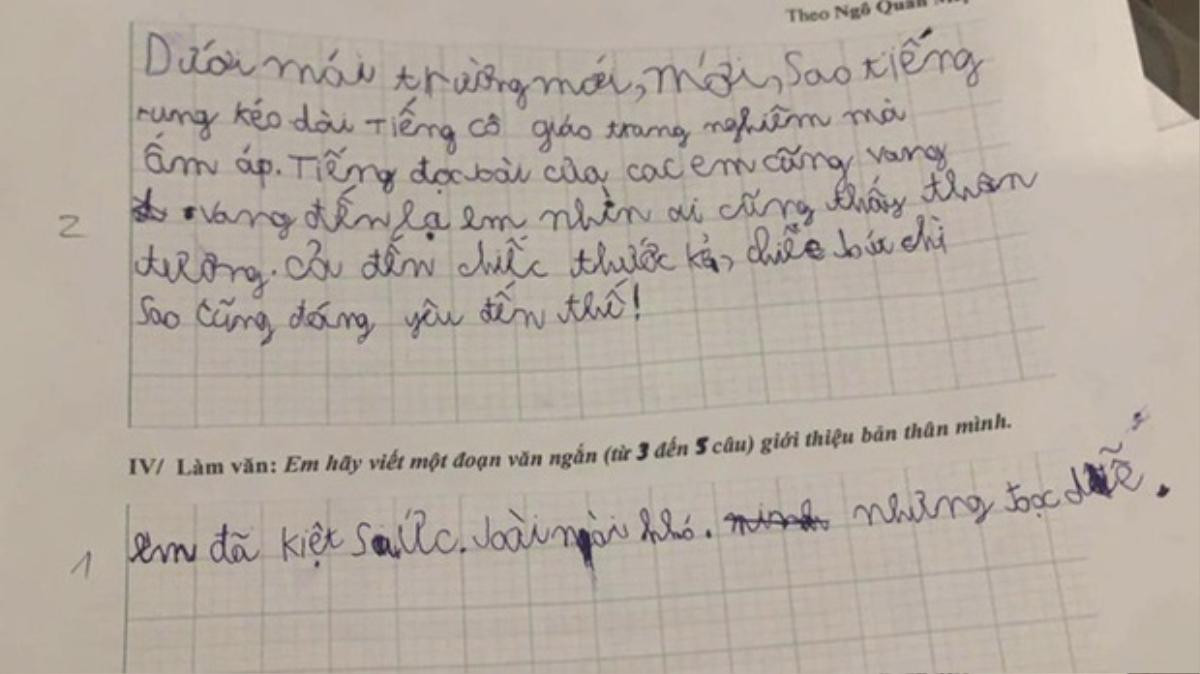 Theo Ngô Quân
Dưới mái trường mới, mới, Sao tiếng
rung kéo dài Tiếng cô giáo trang nghiêm mà
Ấm áp. Tiếng đọc bài của các em cũng vang
vang đến lạ em nhìn ai cũng thấy thân
tương. Cả đến chiếc thước kẻ, chiếc bút chì
2
Sao cũng đáng yêu đến thế!
IV/ Làm văn: Em hãy viết một đoạn văn ngắn (từ 3 đến 5 câu) giới thiệu bản thân mình.
em đã kiệt Sức. bài này khó. những đọc dễ.
1